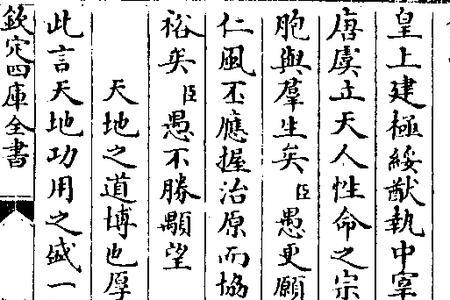 皇上建極綏猷執中宰
唐虞立天人性命之宗
胞與羣生矣臣愚更願
仁風丕應握治原而協
裕矣臣愚不勝顒望
天地之道博也厚
此言天地功用之盛一
欽定四庫全書